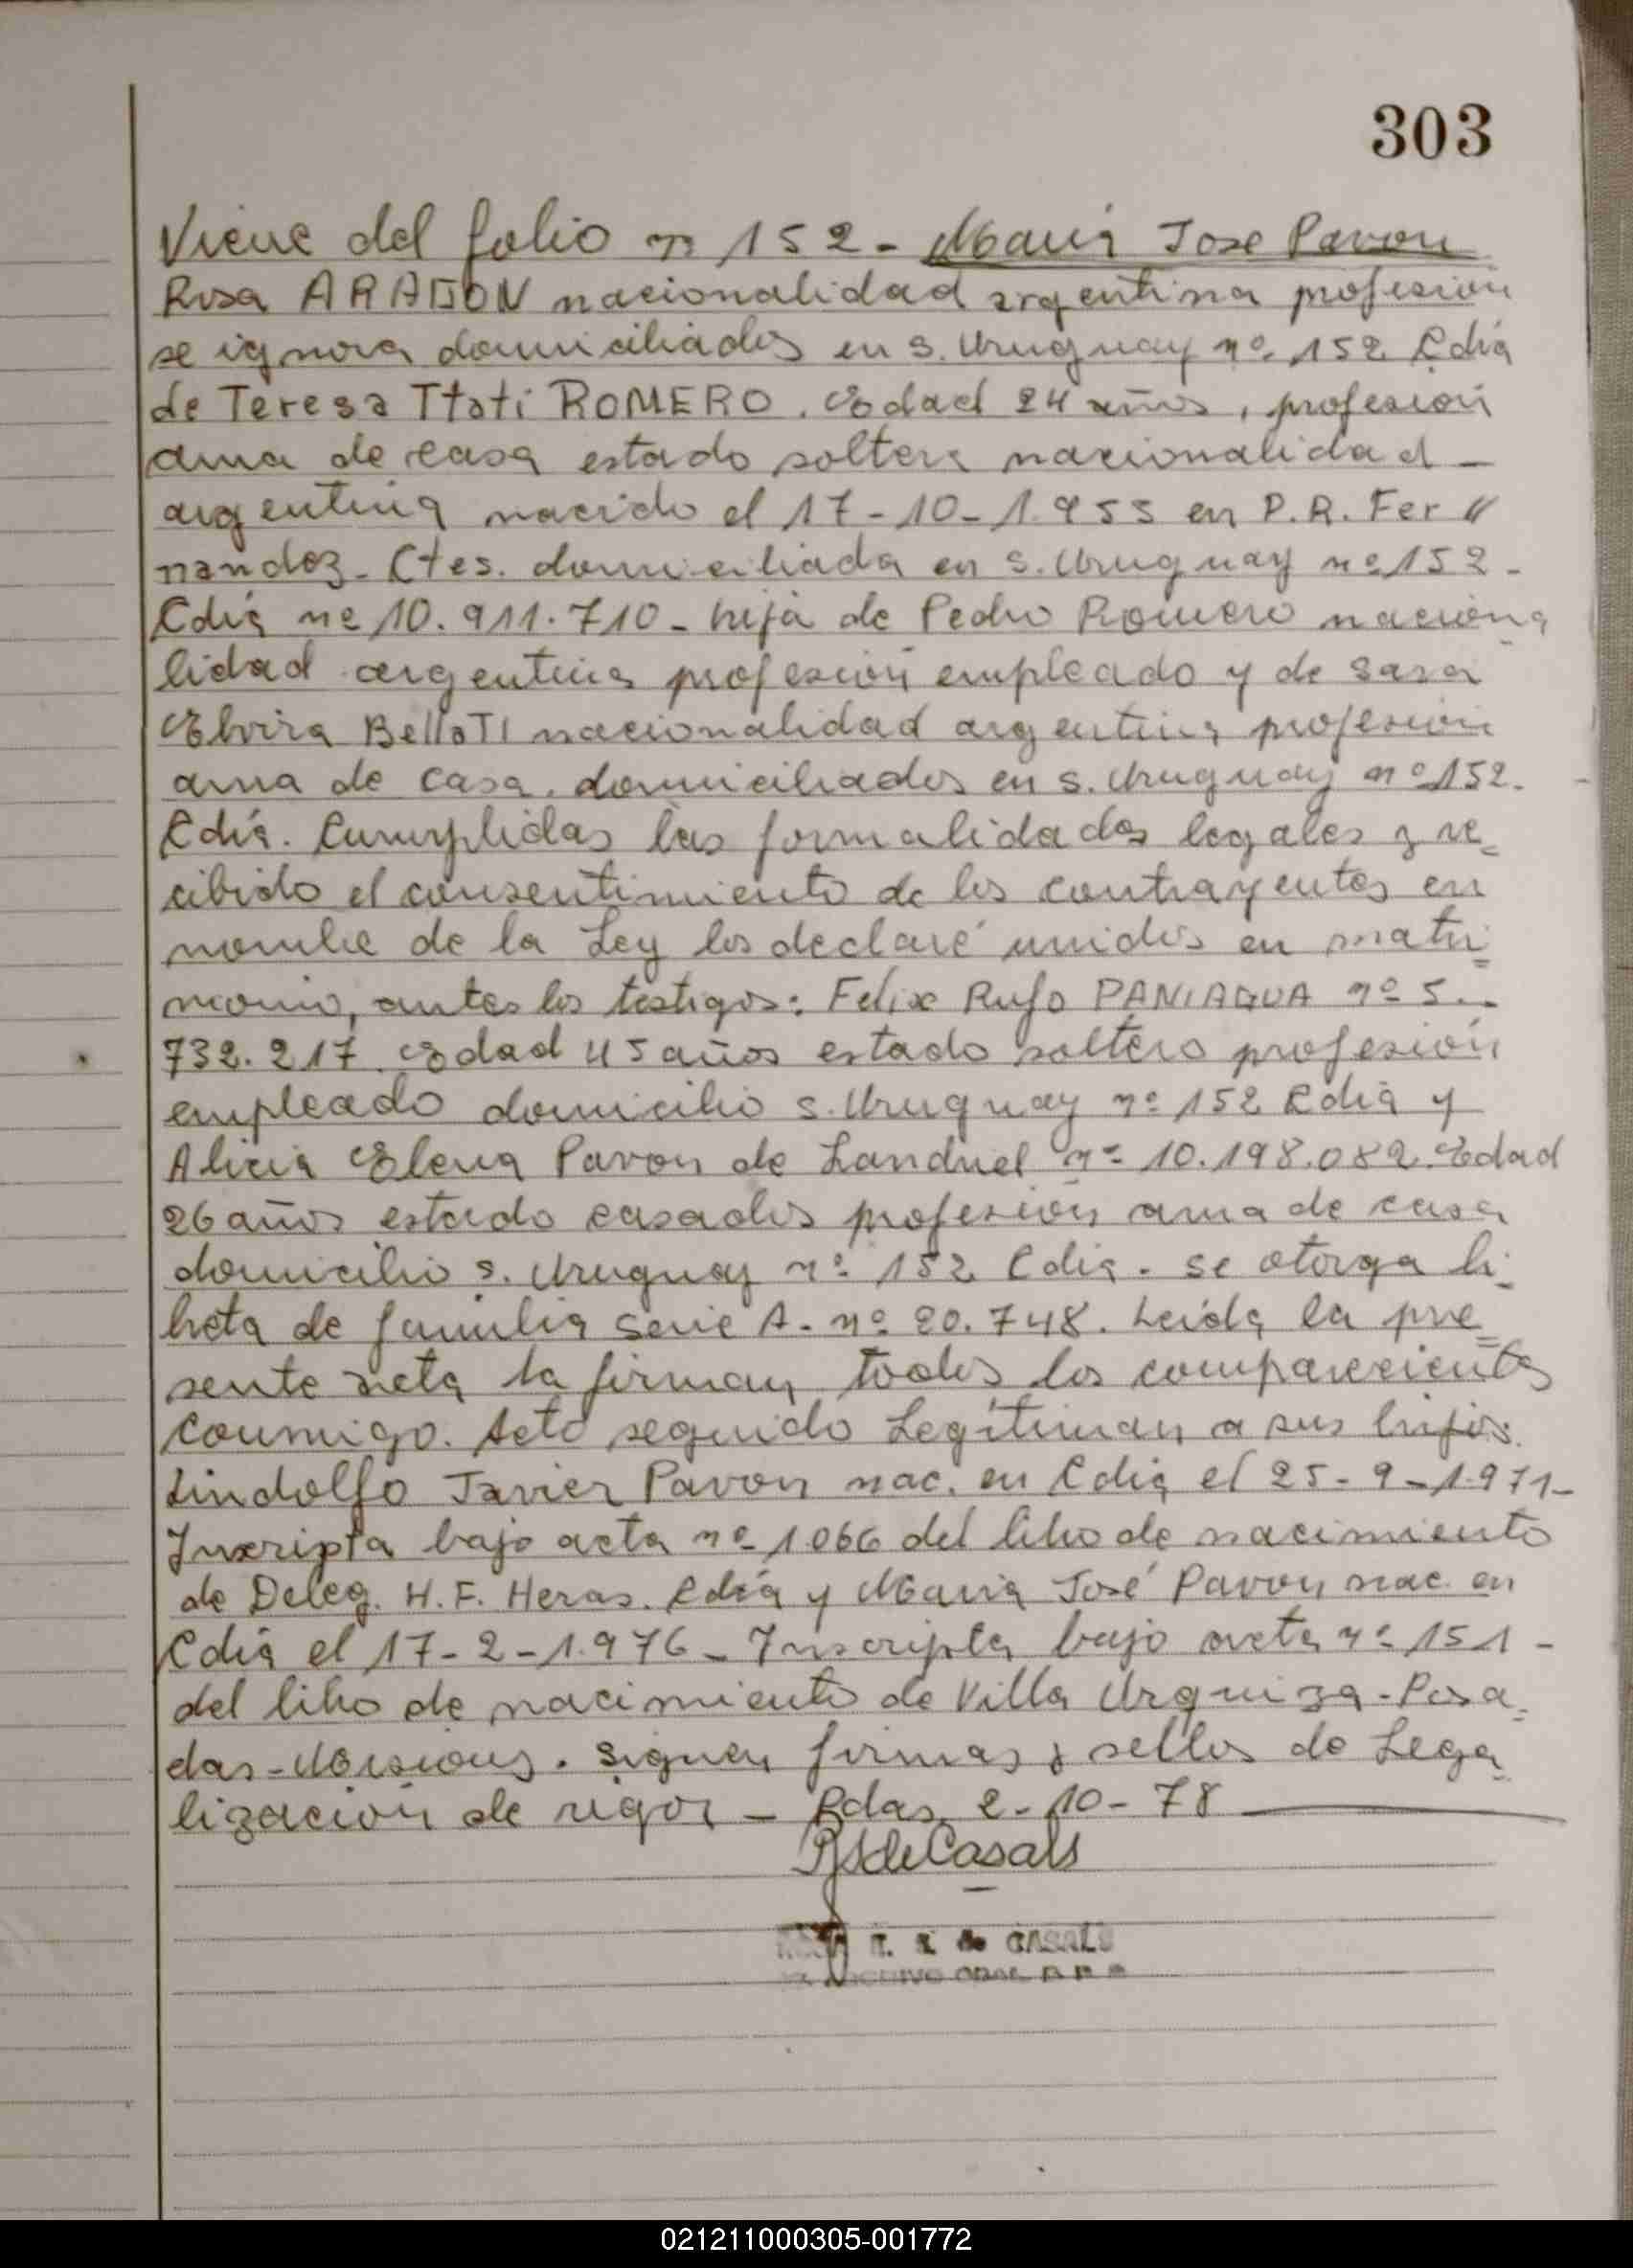 303
Viene del folio n 152 - Maria Jose Pavon
Rosa ARAGON nacionalidad argentina profesion
se ignora domiciliados en S. Uruguay nº 152 Cdia
de Teresa Itati ROMERO. Edad 24 años, profesion
ama de casa estado soltera nacionalidad -
argentina nacido el 17-10-1.953 en P.R. Fer "
nandez - Ctes. domiciliada en S. Uruguay nº 152 -
Cdia nº 10.911.710 - hija de Pedro Romero naciona
lidad argentina profesión empleado y de Sara
Elvira BelloTI nacionalidad argentina profesion
ama de casa. domiciliados en S. Uruguay nº 152.
Cdia. Cumplidas las formalidades legales y re_
cibido el consentimiento de los contrayentes en
nombre de la Ley los declaré unidos en matri=
monio, antes los testigos: Felix Rufo PANIAGUA nº 5.
732.217. Edad 45 años estado soltero profesión
empleado domicilio S. Uruguay nº 152 Cdia y
Alicia Elena Pavon de Landriel nº 10.198.082. Edad
26 años estado casados profesion ama de casa
domicilio S. Uruguay nº 152 Cdia. se otorga li=
breta de familia serie A. nº 20.748. Leida la pre=
sente acta la firman todos los comparecientes
conmigo. Acto seguido Legitiman a sus hijos.
Lindolfo Javier Pavon nac. en Cdia el 25-9-1.971-
Inscripta bajo acta nº 1066 del libro de nacimiento
de Deleg. H. F. Heras. Cdia y Maria José Pavon nac. en
Cdia el 17-2-1.976 - Inscripta bajo acta nº 151 -
del libro de nacimiento de Villa Urquiza - Posa=
das - Misiones. Siguen firmas y sellos de Lega=
lizacion de rigor - Pdas, 2-10-78
de Casals
de CASALS
021211000305-001772